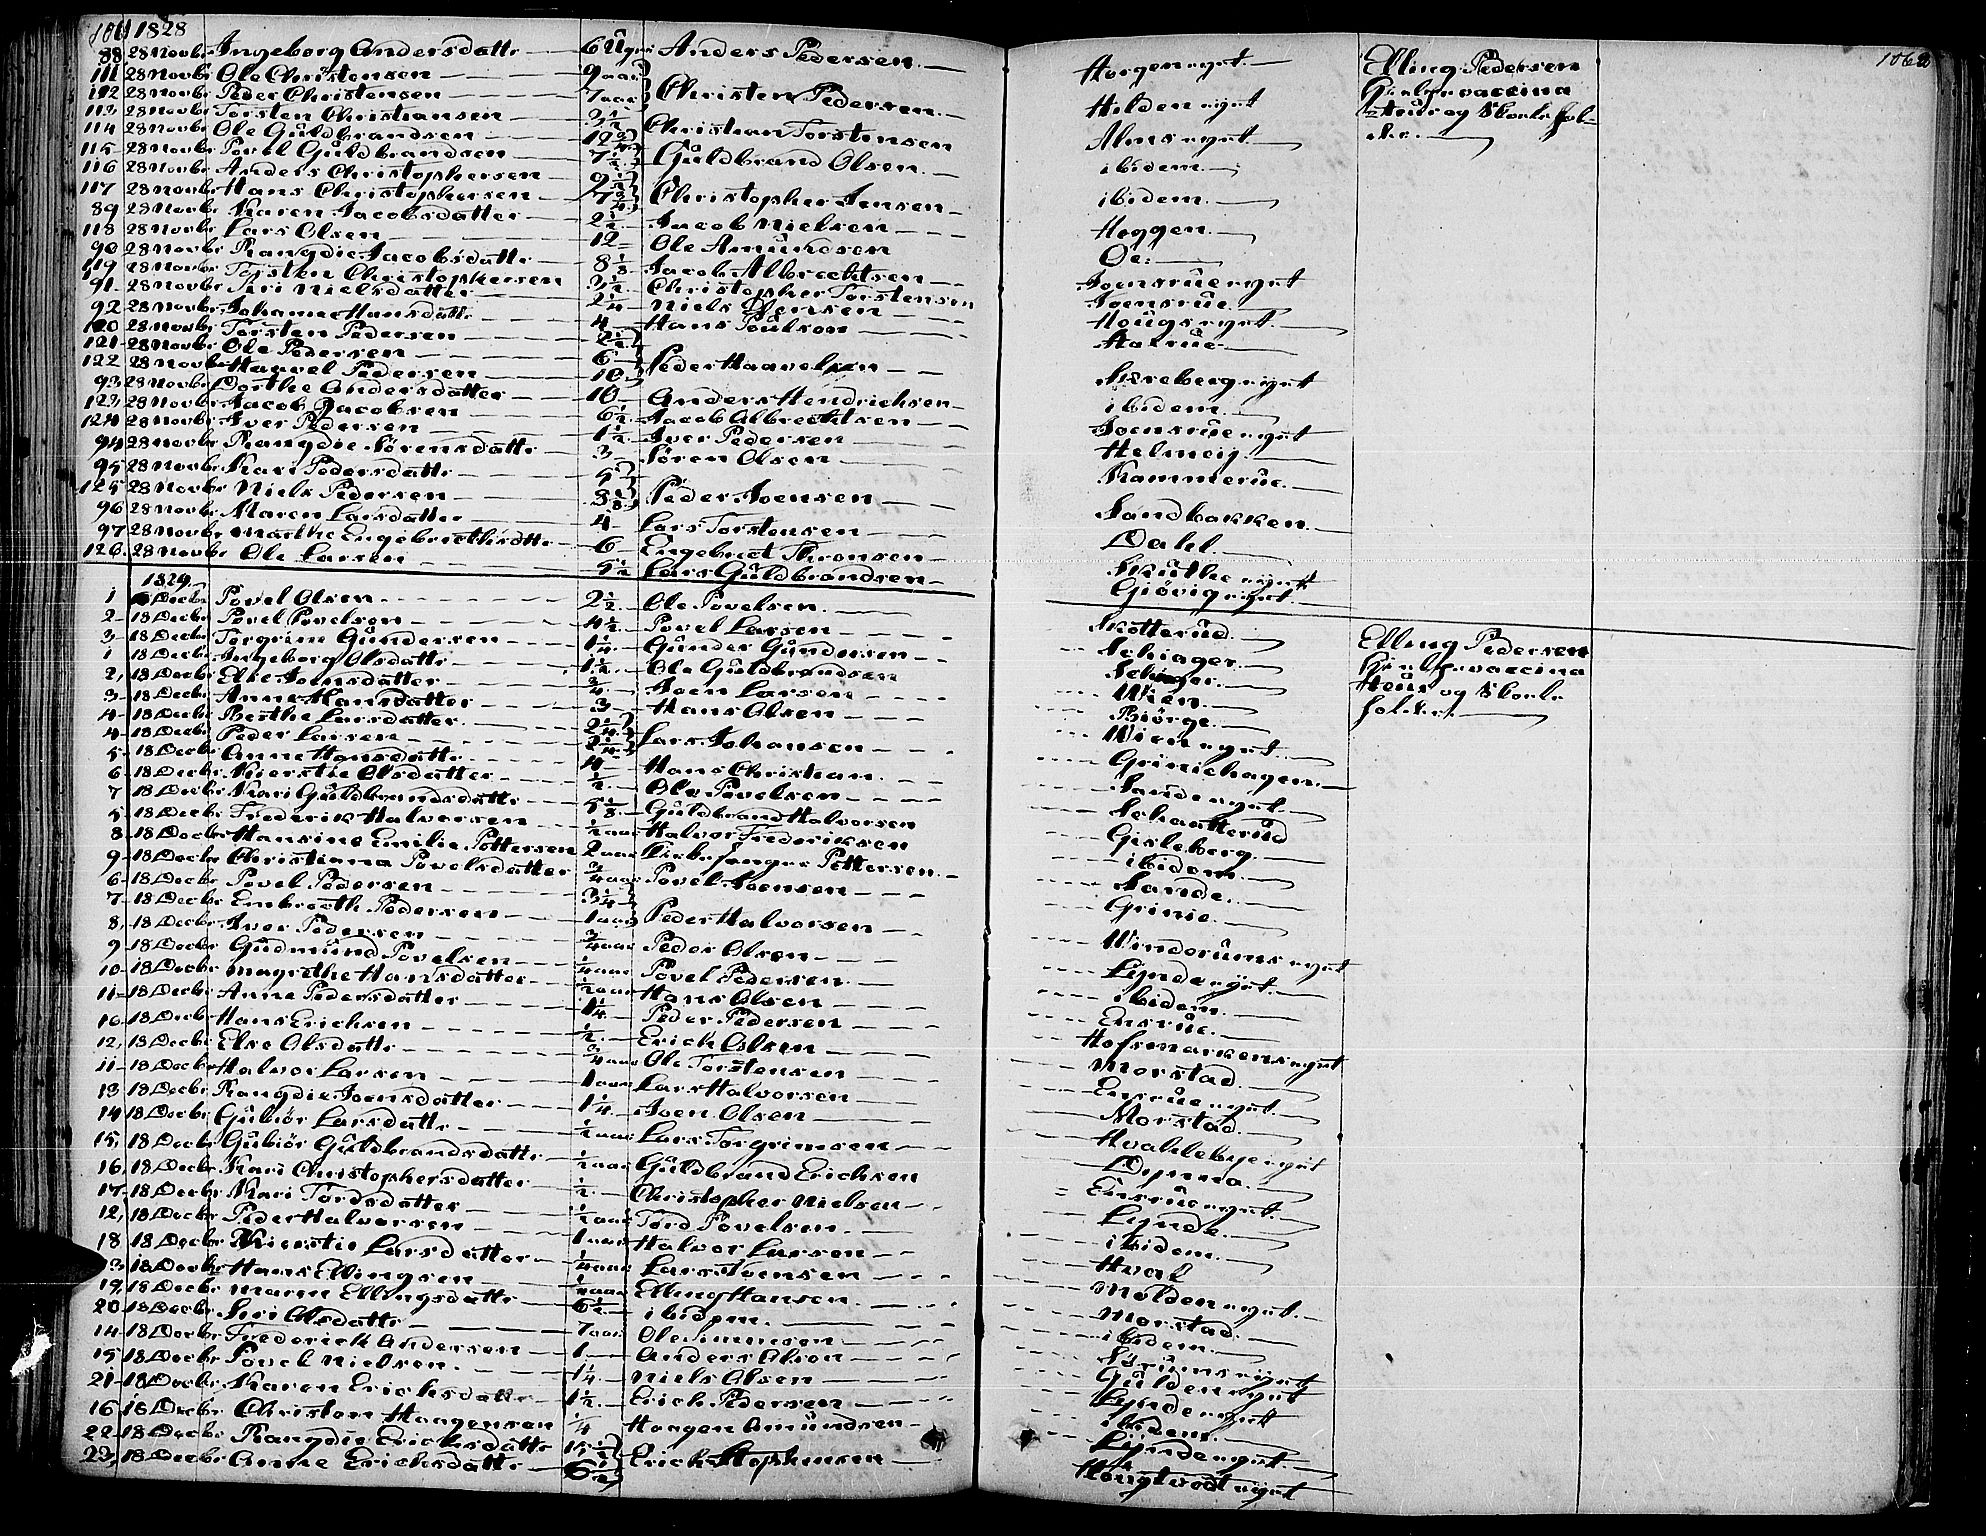 1828
88 28 Novbr Ingeborg Andersdattr 6 Uger Anders Pedersen Horgen eyet Elling Pedersen
111 28 Novbr Ole Christensen 9 aar
112 28 Novbr Peder Christensen 7 aar Christen Pedersen Hilden eyet
113 28 Novbr Torsten Christiansen 3 1/2 Christian Torstensen Alms eyet
114 28 Novbr Ole Guldbrandsen 12
115 28 Novbr Povel Guldbrandsen 7 1/2 Guldbrand Olsen ibidem
116 28 Novbr Anders Christophersen 9 1/2
117 28 Novbr Hans Christophersen 7 Christopher Jensen ibidem
89 28 Novbr Karen Jacobsdatter 2 1/2 Jacob Nielsen Heggen
118 28 Novbr Lars Olsen 12 Ole Amundsen Oe
90 28 Novbr Rangdie Jacobsdattr 8 1/8 Jacob Albrechtsen Joensrue eyet
119 28 Novbr Torsten Christophersen 3 1/2 Christopher Torstensen Joensrue
91 28 Novbr Siri Nielsdatter 2 1/4 Niels Jensen Hougs eyet
92 28 Novbr Johanne Hansdattr 4 Hans Poulson
120 28 Novbr Torsten Pedersen 2 1/2
121 28 Novbr Ole Pedersen 6
122 28 Novbr Haavel Pedersen 10 Peder Haavelsen
93 28 Novbr Dorthe Andersdatter 10 Anders Hendrichsen ibidem
123 28 Novbr Jacob Jacobsen 6 1/2 Jacob Albrechtsen Joensrue eyet
124 28 Novbr Iver Pedersen 1 1/2 Iver Pedersen Helmeig
94 28 Novbr Rangdie Sörensdattr 3 Sören Olsen Kammerue
95 28 Novbr Kari Pedersdattr 5
125 28 Novbr Niels Pedersen 3 Peder Joensen Sandbakken
96 28 Novbr Maren Larsdatter 4 Lars Torstensen Dahl
97 28 Novbr Marthe Engebrethsdttr 6 Engebret Thronsen
126 28 Novbr Ole Larsen 5 1/2 Lars Guldbrandsen Giövig eyet
1829
1 18 Decbr Povel Olsen 2 1/2 Ole Povelsen Skotterud Elling Pedersen
2 18 Decbr Povel Povelsen 4 1/2 Povel Larsen Schiager
3 18 Decbr Torgrim Gundersen 1 1/4 Gunder Gundersen
1 18 Decbr Ingeborg Olsdattr 1 1/2 Ole Guldbrandsen Wien
2 18 Decbr Else Joensdatter 3/4 Joen Larsen Biörge
3 18 Decbr Anne Hansdatter 3 Hans Olsen Wien eyet
4 18 Decbr Berthe Larsdatter 2 1/4
4 18 Decbr Peder Larsen 2 1/4 Lars Johansen Griniehagen
5 18 Decbr Anne Hansdattr 4 Hans Christian Sande eyet
6 18 Decbr Kierstie Olsdatter 1/2 Ole Povelsen Schautterud
7 18 Decbr Kari Guldbrandsdattr 5 1/8 Guldbrand Halvorsen Gisleberg
5 18 Decbr Frederik Halvorsen 1/2 aar Halvor Frederiksen ibidem
8 18 Decbr Hansine Emilie Pettersen 2 aar Kirkesanger Pettersen Sande
9 18 Decbr Christianna Povelsdatter 3/4 aar Povel Joensen Grinie
6 18 Decbr Povel Pedersen 3 1/4
7 18 Decbr Embreth Pedersen 1 aar Peder Halvorsen Windorums eyet
8 18 Decbr Iver Pedersen 3/4 aar Peder Olsen Lynde eyet
9 18 Decbr Gudmund Povelsen 1/4 aar Povel Pedersen ibidem
10 18 Decbr Magrethe Hansdatter 1/2 aar Hans Olsen Ensrue
11 18 Decbr Anne Pedersdatter 1 1/4 Peder Pedersen Hofsmarkens eyet
10 18 Decbr Hans Erichsen 1/2 Erich Olsen Morstad
12 18 Decbr Else Olsdattr 3/4 aar Ole Torstensen Ensrue eyet
11 18 Decbr Halvor Larsen 1 aar Lars Halvorsen Morstad
13 18 Decbr Rangdie Joensdatter 1 1/4 Joen Olsen Hvalebye eyet
14 18 Decbr Gubiör Larsdattr 1/2 aar Lars Torgrimsen Dynna
15 18 Decbr Gubiör Guldbrandsdattr 1/2 aar Guldbrand Erichsen Ensrue eyet
16 18 Decbr Kari Christophersdatter 1/2 Christopher Nielsen Lynde
17 18 Decbr Kari Tordsdatter 1/2 aar Tord Povelsen ibidem
12 18 Decbr Peder Halvorsen 1 aar Halvor Larsen Hval
18 18 Decbr Kierstie Larsdatter 1/4 aar Lars Joensen Molden eyet
13 18 Decbr Hans Ellingsen Elling Hansen Morstad
19 18 Decbr Maren Ellingsdattr 6 1/2 ibidem ibidem
20 18 Decbr Siri Olsdattr 7 aar Ole Simensen Sörums eyet
14 18 Decbr Frederick Andersen 1 Anders Olsen Gulden eyet
15 18 Decbr Povel Nielsen 1 1/4 Niels Olsen Lynde eyet
21 18 Decbr Karen Erichsdattr 1 1/2 Erich Pedersen ibidem
16 18 Decbr Christen Haagensen 1/4 Haagen Amundsen Lynde eyet
22 18 Decbr Rangdie Erichsdattr
23 18 Decbr Anne Erichsdattr 6 1/2 Erich Stephensen